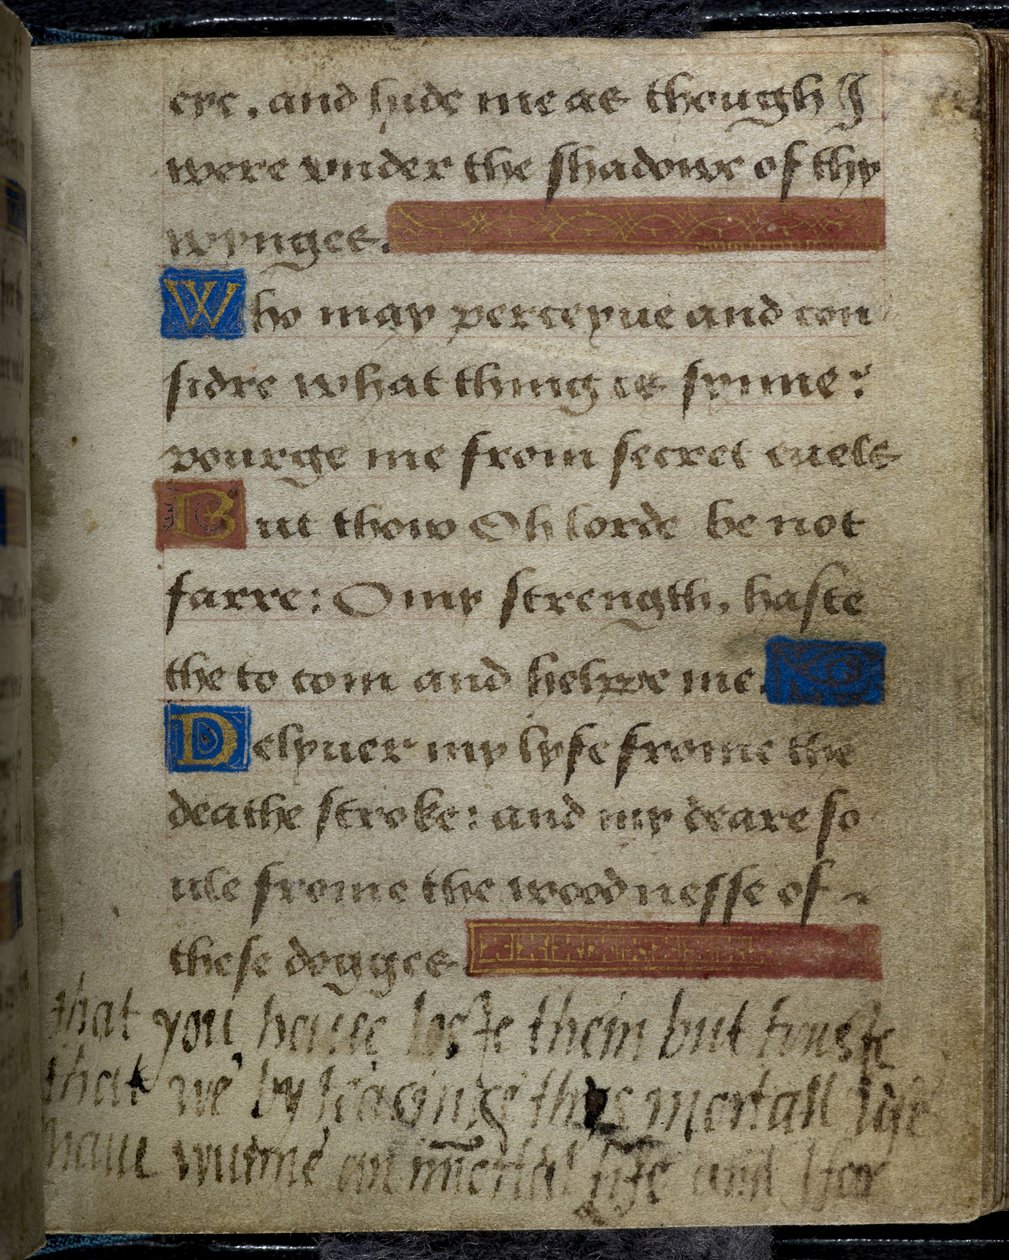 eye, and hide me as though I
were vnder the shadowe of thy
wynges.
Who may perceyue and con
sidre what thing is synne?
pourge me from secret euels
But thow Oh lorde be not
farre: O my strength, haste
the to com and helpe me.
Delyuer my lyfe frome the
deathe stroke: and my deare so
ule frome the woodnesse of
these dogges
that you haue loste them but truste
that we by leaving this mortall life
haue wunne an immortal life and I for